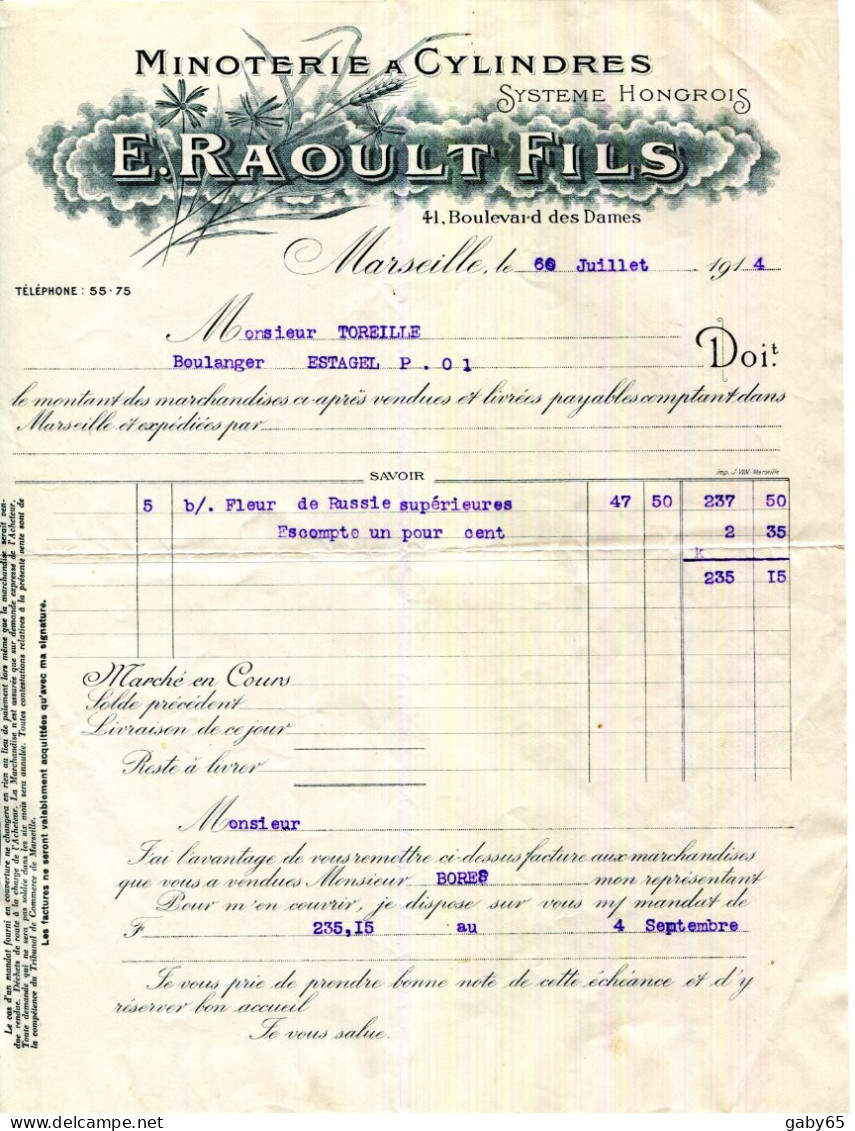 MINOTERIE A CYLINDRES
SYSTEME HONGROIS
E. RAOULT FILS
41, Boulevard des Dames
Marseille, le 60 Juillet 1914
TÉLÉPHONE : 55-75
Monsieur TOREILLE
Boulanger ESTAGEL P . O1
Doit.
le montant des marchandises ci-après vendues et livrées payables comptant dans
Marseille et expédiées par
SAVOIR
Imp. J. VIN - Marseille
5 b/. Fleur de Russie supérieures 47 50 237 50
Escompte un pour cent 2 35
k
235 I5
Marché en Cours
Solde précédent
Livraison de ce jour
Reste à livrer
Monsieur
J'ai l'avantage de vous remettre ci-dessus facture aux marchandises
que vous a vendues Monsieur BORES mon représentant
Pour m'en couvrir, je dispose sur vous m/ mandat de
F 235,I5 au 4 Septembre
Je vous prie de prendre bonne note de cette échéance et d'y
réserver bon accueil
Je vous salue.
Le cas d'un mandat fourni en couverture ne changera en rien au lieu de paiement lors même que la marchandise serait ven-
due rendue. Déchets de route à la charge de l'Acheteur. La Marchandise n'est assurée que sur demande expresse de l'Acheteur.
Toute demande qui ne sera pas soldée dans les six mois sera annulée. Toutes contestations relatives à la présente vente sont de
la compétence du Tribunal de Commerce de Marseille.
Les factures ne seront valablement acquittées qu'avec ma signature.
delcampe.net
gaby65